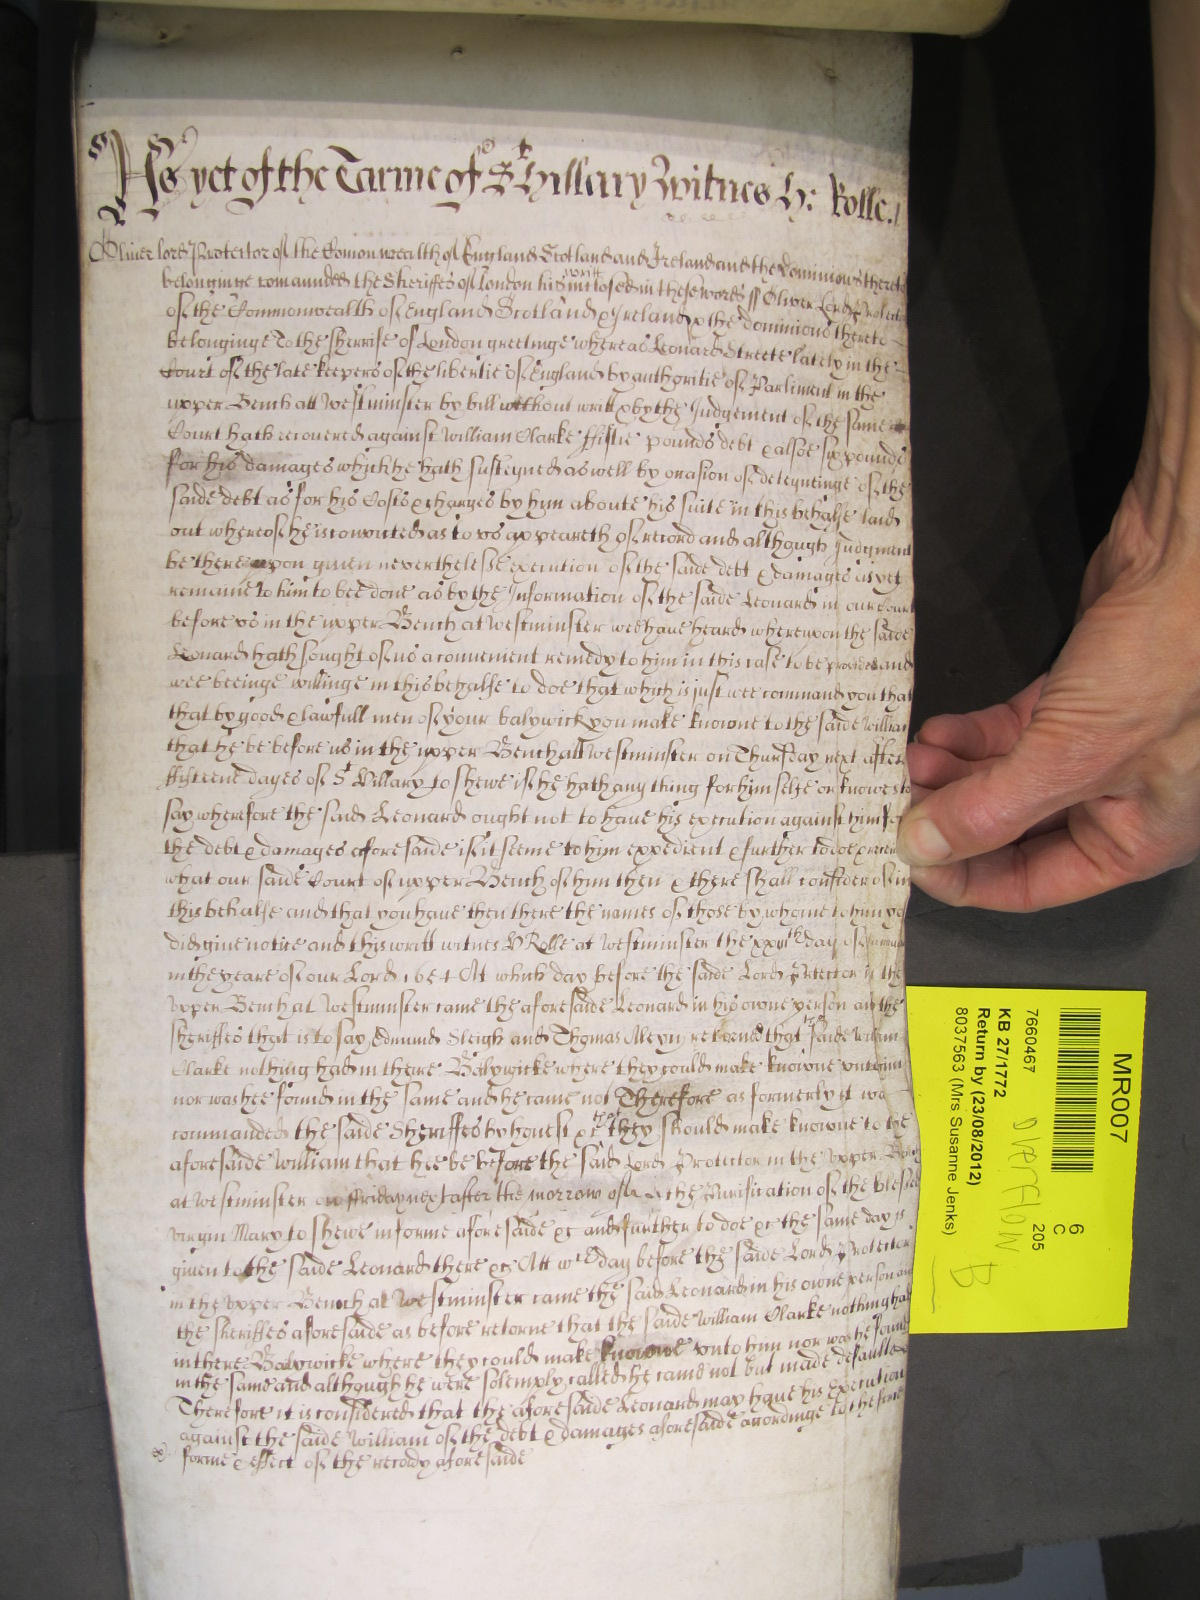 As yet of the Tearme of St Hillary Witnes H: Rolle.
Oliver lord Protector of the Comonwealth of England Scotland and Ireland and the Dominions thereto
belonginge comaunded the Sheriffes of London his writt inclosed in these words ss Oliver Lord Protector
of the Commonwealth of England Scotland & Ireland & the dominions thereto
belonginge To the sherrife of London greetinge whereas Leonard Streete lately in the
Court of the late keepers of the libertie of England by authoritie of Parliment in the
upper Bench att Westminster by bill without writt & by the Judgement of the same
Court hath recovered against William Clarke fiftie pounds debt & alsoe six pounds
for his damages which he hath susteyned as well by ocasion of deteyneinge of the
saide debt as for his Costs & charges by him aboute his suite in this behalfe laid
out whereof he is convicted as to us appeareth of record and although Judgment
be thereupon given neverthelesse execution of the saide debt & damages as yet
remaine to him to bee done as by the Information of the saide Leonard in our Court
before us in the upper Bench at Westminster wee have heard whereupon the saide
Leonard hath sought of us a convenient remedy to him in this case to be provided and
wee beeinge willinge in this behalfe to doe that which is just wee command you that
that by good & lawfull men of your balywick you make knowne to the saide William
that he be before us in the upper Bench att Westminster on Thursday next after
fifteene dayes of St Hillary to shewe if he hath any thing for himselfe or knowes to
say wherefore the said Leonard ought not to have his execution against him for
the debt & damages aforesaide if it seeme to him expedient & further to doe & receive
what our saide Court of upper Bench of him then & there shall consider of in
this behalfe and that you have then there the names of those by whome to him you
did give notice and this writt witnes H Rolle at Westminster the xxiiith day of January
in the yeare of our Lord 1654 At which day before the saide Lord Protector in the
Upper Bench at Westminster came the aforesaide Leonard in his owne person and the
sheriffes that is to say Edmund Sleigh and Thomas Aleyn retorned that the saide William
Clarke nothing had in theire Balywicke where they could make knowne unto him
nor was hee found in the same and he came not Therefore as formerly it was
commanded the saide Sheriffes by honest &c that they should make knowne to the
aforesaide William that hee be before the said Lord Protector in the upper Bench
at Westminster on ffriday next after the morrow of the Purification of the blessed
virgin Mary to shewe in forme aforesaide &c and further to doe &c the same day is
given to the saide Leonard there &c Att wch day before the saide Lord Protector
in the upper Bench at Westminster came the said Leonard in his owne person and
the sheriffes aforesaide as before retorne that the saide William Clarke nothing had
in there Balywicke where they could make knowne unto him nor was he found
in the same and although he were solemply called he came not but made defaulte
Therefore it is considered that the aforesaide Leonard may have his execution
against the saide William of the debt & damages aforesaide accordinge to the
forme & effect of the recovery aforesaide
MR007
6
C
205
7660467
overflow
KB 27/1772
Return by (23/08/2012)
8037563 (Mrs Susanne Jenks)
B